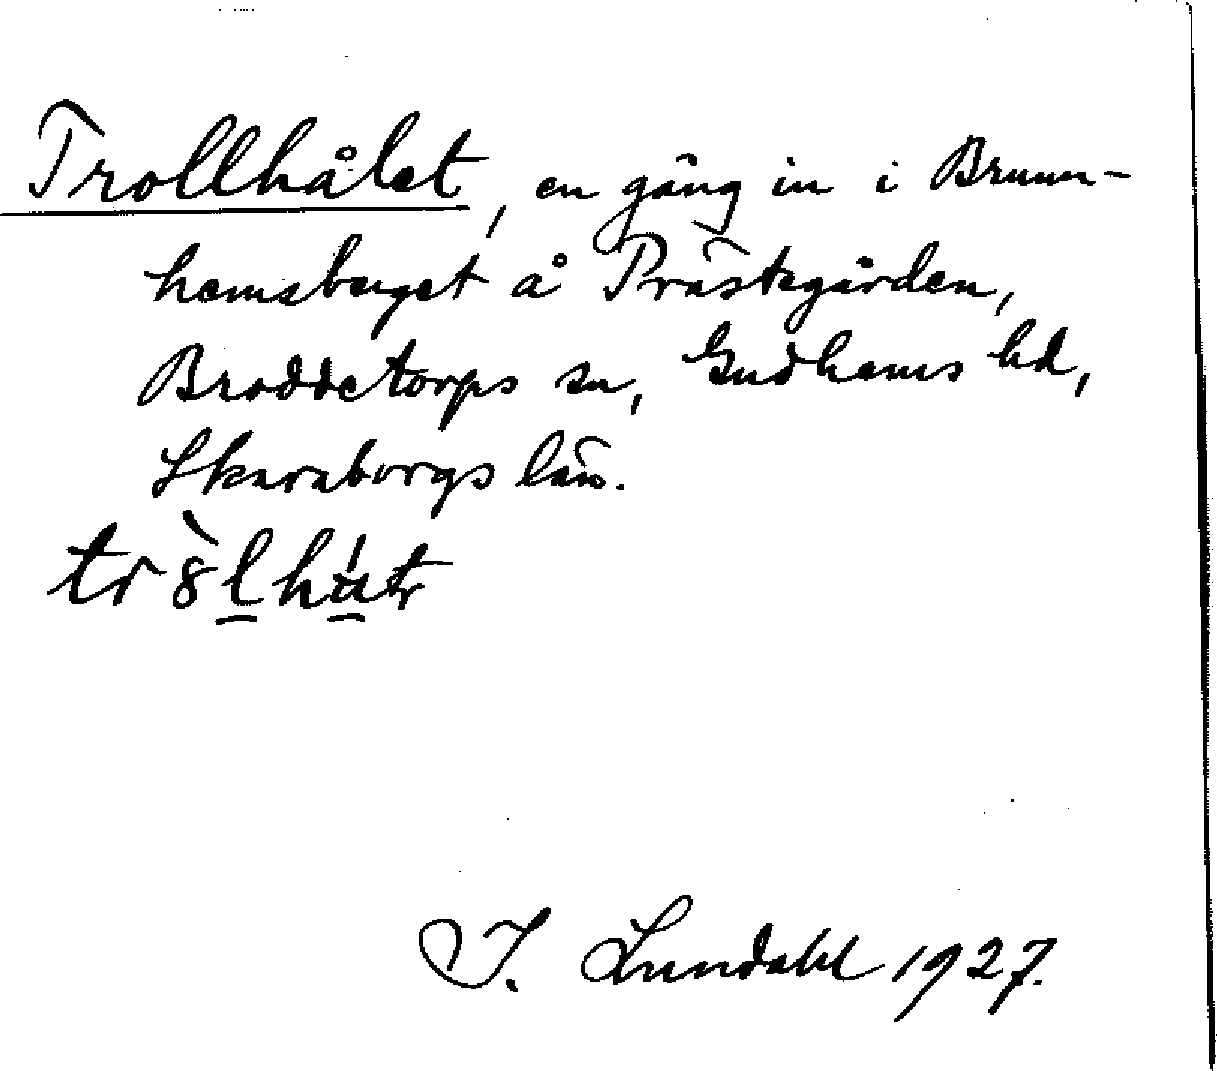 Trollhålet, en gång in i Brunn-
hemsberget å Prästegården,
Broddetorps sn, Gudhems hd,
Skaraborgs län.
trò̀lhátr
I. Lundahl 1927.